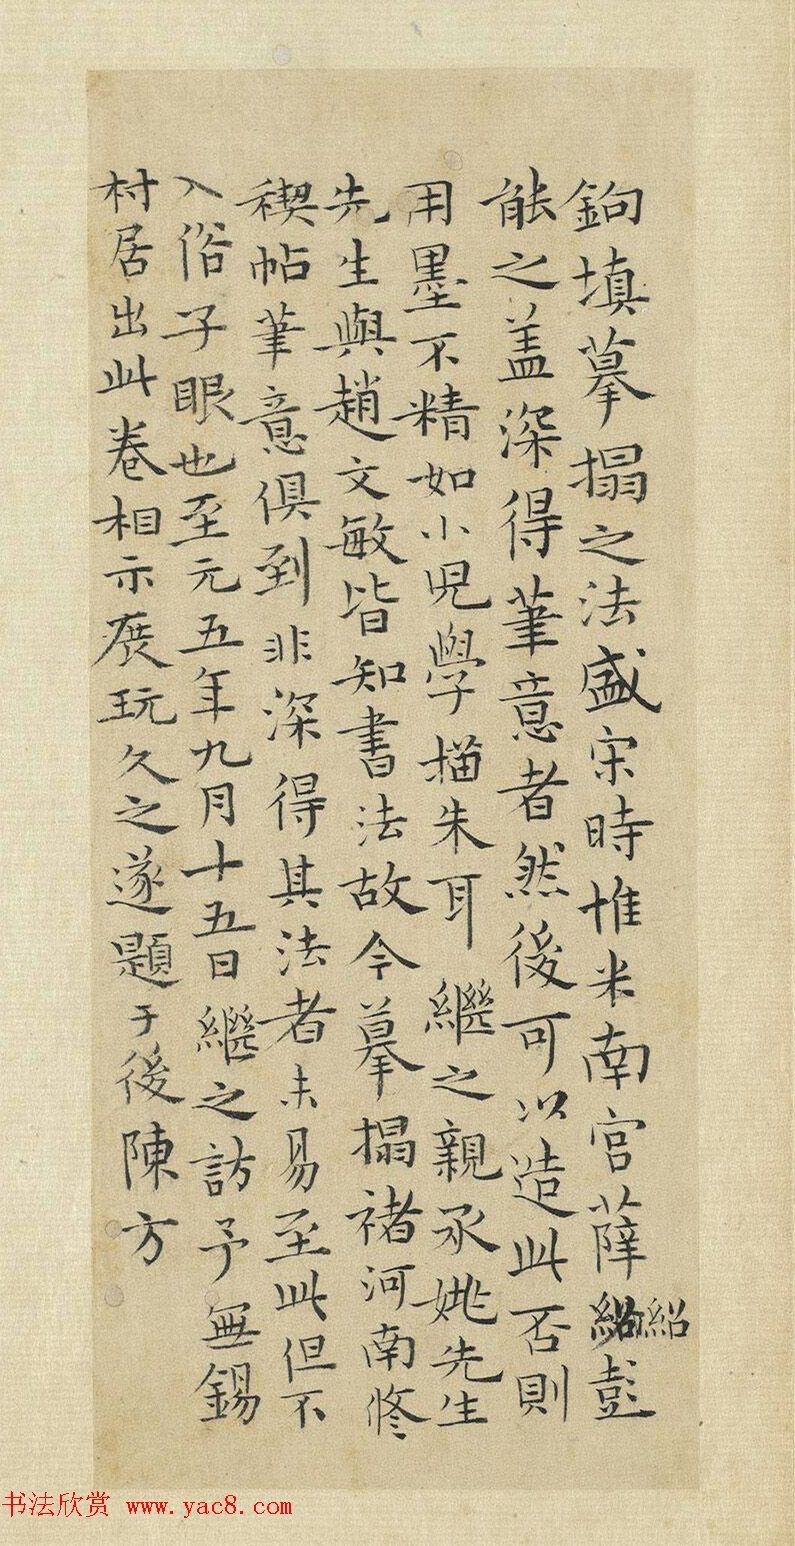 鉤填摹搨之法盛宋時惟米南宮薛紹彭
紹
能之蓋深得筆意者然後可以造此否則
用墨不精如小兒學描朱耳繼之親承姚先生
先生與趙文敏皆知書法故今摹搨褚河南修
禊帖筆意俱到非深得其法者未易至此但不
入俗子眼也至元五年九月十五日繼之訪予無錫
村居出此卷相示展玩久之遂題于後陳方
书法欣赏 www.yac8.com